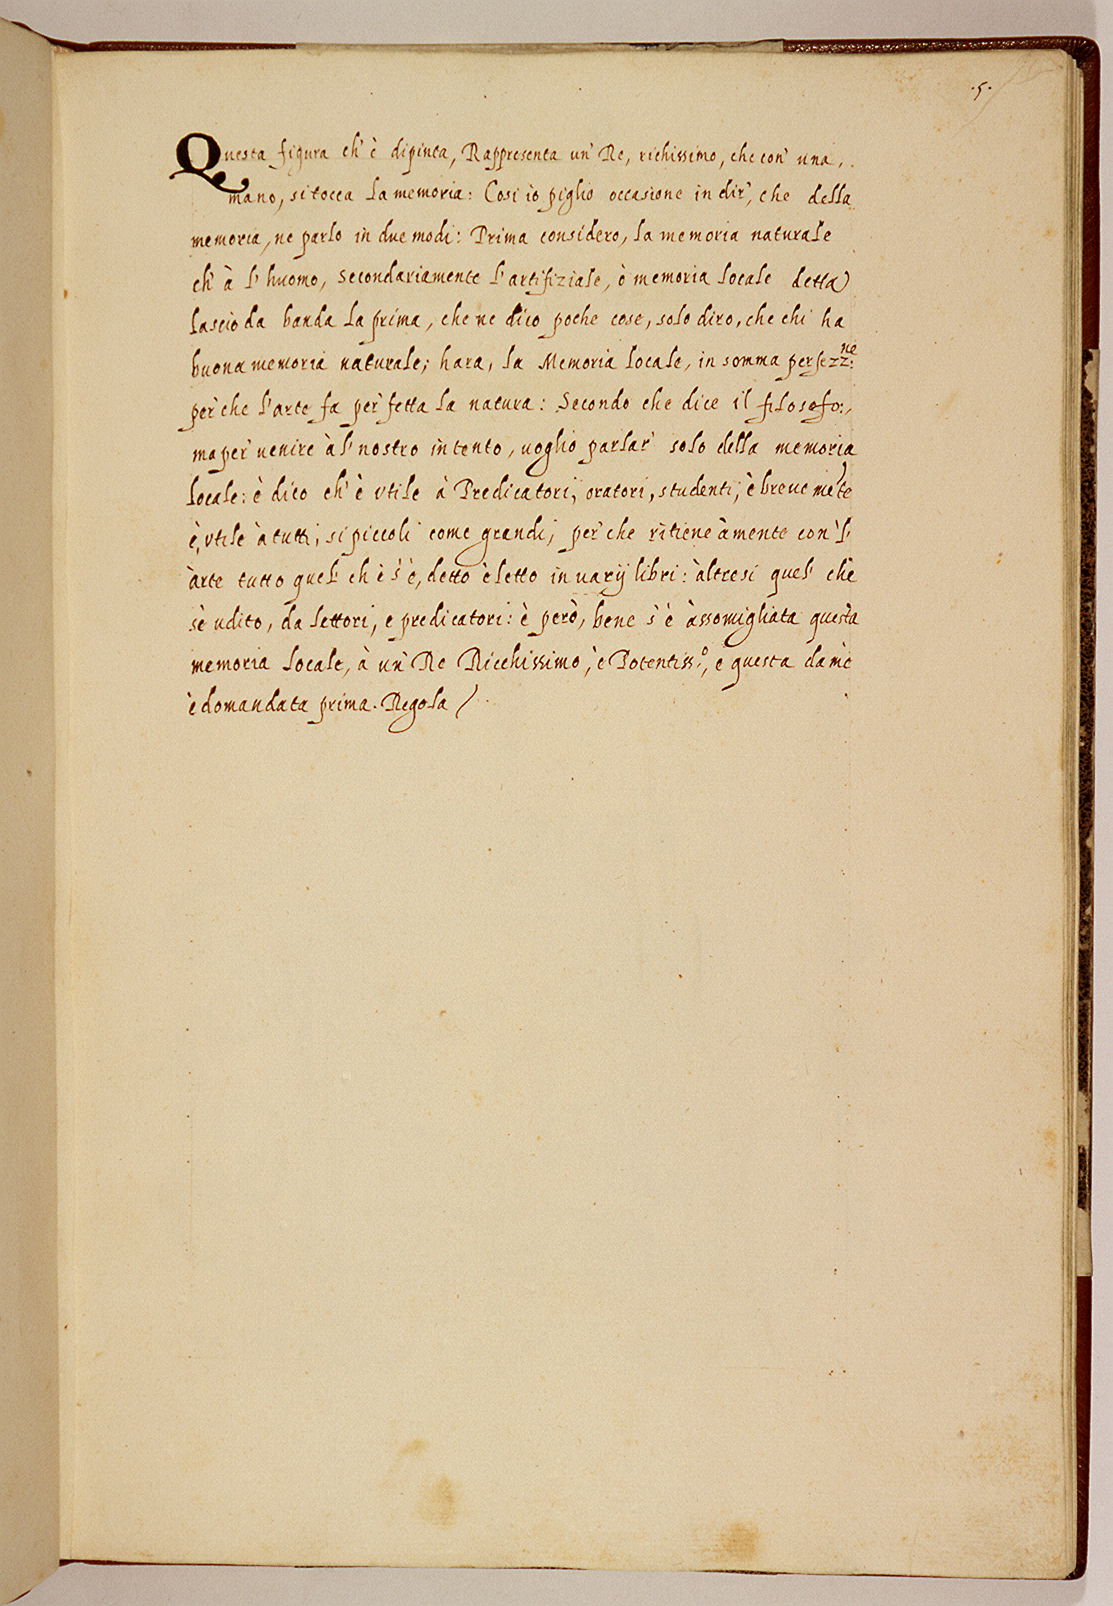 ·5·
Questa figura ch' è dipinta, Rappresenta un' Re, richissimo, che con' una,
mano, si tocca la memoria: Cosi io piglio occasione in dir', che della
memoria, ne parlo in due modi: Prima considero, la memoria naturale
ch' à l' huomo, secondariamente l' artifiziale, ò memoria locale detta
lascio da banda la prima, che ne dico poche cose, solo diro, che chi ha
buona memoria naturale; hara, la Memoria locale, in somma perfezz:ne
per' che l'arte fa per' fetta la natura: Secondo che dice il filosofo:,
ma per' venire à l' nostro intento, uoglio parlar' solo della memoria
locale: è dico ch' è vtile à Predicatori, oratori, studenti, è breue mēte
è, vtile à tutti, si piccoli come grandi, per' che ritiene à mente con' l'
àrte tutto quel' ch è s' è, detto è letto in uarij libri: àltresi quel' chè
sè udito, da lettori, e predicatori: è però, bene s' è àssomigliata questa
memoria locale, à un' Re Ricchissimo, è Potentiss.o, e questa da mè
è domandata prima. Regola /